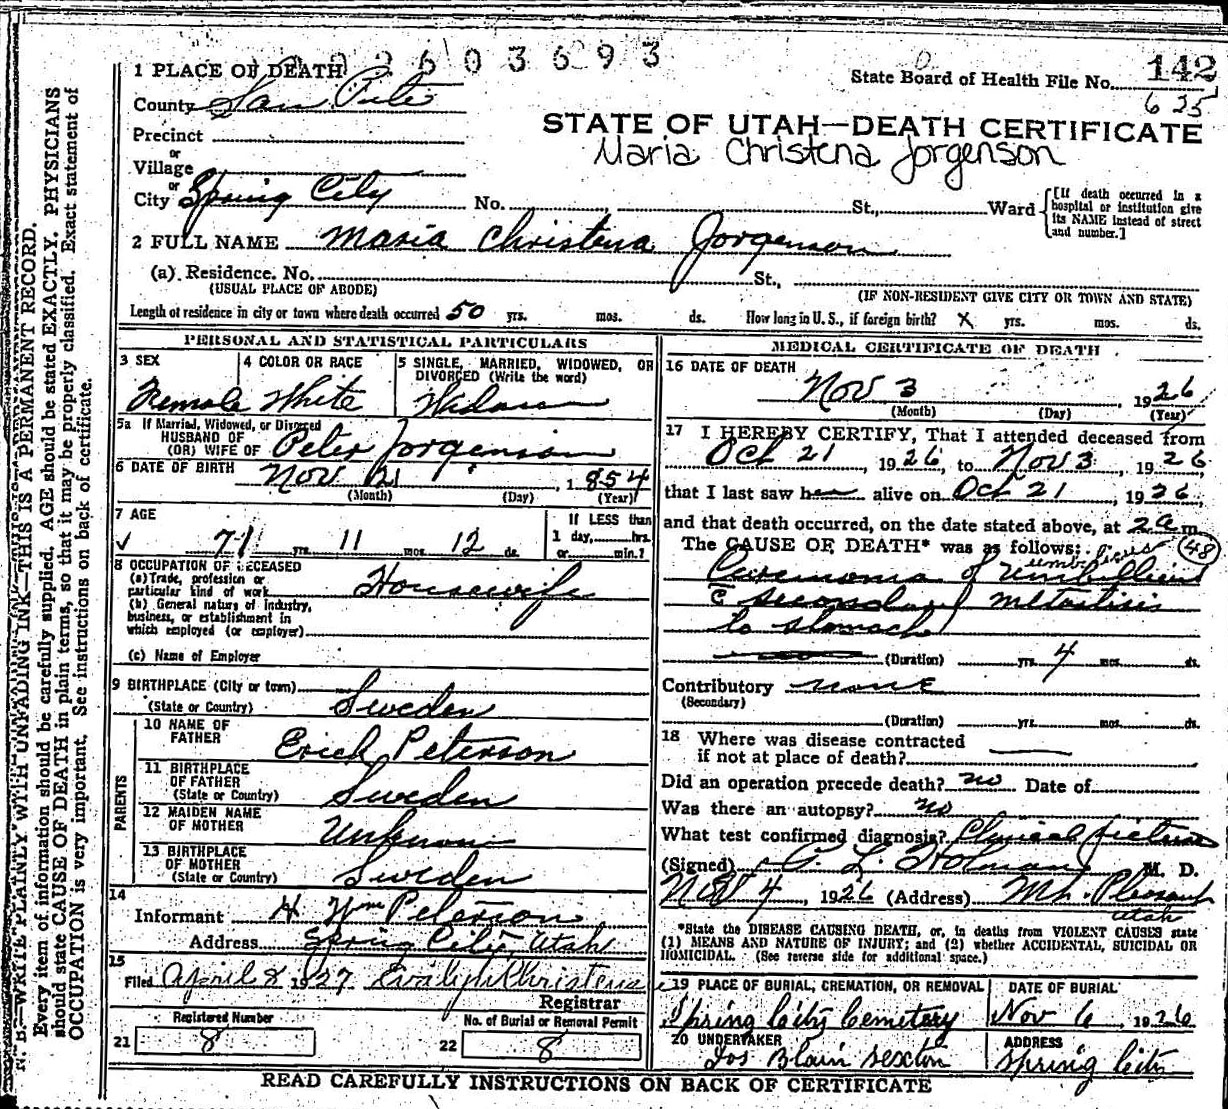 2603693
1 PLACE OF DEATH
State Board of Health File No. 142
625
County San Pete
STATE OF UTAH—DEATH CERTIFICATE
Maria Christena Jorgenson
Precinct
or
Village
or
City Spring City No. St., Ward
[If death occurred in a
hospital or institution give
its NAME instead of street
and number.]
2 FULL NAME Maria Christena Jorgenson
(a) Residence. No. St.,
(USUAL PLACE OF ABODE)
(IF NON-RESIDENT GIVE CITY OR TOWN AND STATE)
Length of residence in city or town where death occurred 50 yrs. mos. ds. How long in U. S., if foreign birth? X yrs. mos. ds.
PERSONAL AND STATISTICAL PARTICULARS
3 SEX
Female
4 COLOR OR RACE
White
5 SINGLE, MARRIED, WIDOWED, OR
DIVORCED (Write the word)
Widow
5a If Married, Widowed, or Divorced
HUSBAND OF
(OR) WIFE OF Peter Jorgenson
6 DATE OF BIRTH Nov 21, 1854
(Month) (Day) (Year)
7 AGE
71 yrs. 11 mos. 12 ds.
If LESS than
1 day, hrs.
or min.?
8 OCCUPATION OF DECEASED
(a) Trade, profession or
particular kind of work Housewife
(b) General nature of industry,
business, or establishment in
which employed (or employer)
(c) Name of Employer
9 BIRTHPLACE (City or town)
(State or Country) Sweden
PARENTS
10 NAME OF
FATHER Erick Peterson
11 BIRTHPLACE
OF FATHER
(State or Country) Sweden
12 MAIDEN NAME
OF MOTHER Unknown
13 BIRTHPLACE
OF MOTHER
(State or Country) Sweden
14
Informant Wm Peterson
Address Spring City Utah
15
Filed April 8 1927 Christena
Registrar
Registered Number
21 8
No. of Burial or Removal Permit
22 8
MEDICAL CERTIFICATE OF DEATH
16 DATE OF DEATH
Nov 3 1926
(Month) (Day) (Year)
17 I HEREBY CERTIFY, That I attended deceased from
Oct 21, 1926, to Nov 3, 1926
that I last saw her alive on Oct 21, 1926,
and that death occurred, on the date stated above, at 2 a m.
The CAUSE OF DEATH* was as follows:
umbilicus 48
Carcinoma of Umbillicus
c secondary metastisis
to stomach
(Duration) yrs. 4 mos. ds.
Contributory none
(Secondary)
(Duration) yrs. mos. ds.
18 Where was disease contracted
if not at place of death?
Did an operation precede death? no Date of
Was there an autopsy? no
What test confirmed diagnosis? Clinical picture
(Signed) L. Holman M. D.
Nov 4, 1926 (Address) Mt. Pleasant
Utah
*State the DISEASE CAUSING DEATH, or, in deaths from VIOLENT CAUSES state
(1) MEANS AND NATURE OF INJURY; and (2) whether ACCIDENTAL, SUICIDAL OR
HOMICIDAL. (See reverse side for additional space.)
19 PLACE OF BURIAL, CREMATION, OR REMOVAL
Spring City Cemetery
DATE OF BURIAL
Nov 6, 1926
20 UNDERTAKER
Jos Blain sexton
ADDRESS
Spring City
READ CAREFULLY INSTRUCTIONS ON BACK OF CERTIFICATE
N. B.—WRITE PLAINLY WITH UNFADING INK—THIS IS A PERMANENT RECORD.
Every item of information should be carefully supplied. AGE should be stated EXACTLY. PHYSICIANS
should state CAUSE OF DEATH in plain terms, so that it may be properly classified. Exact statement of
OCCUPATION is very important. See instructions on back of certificate.